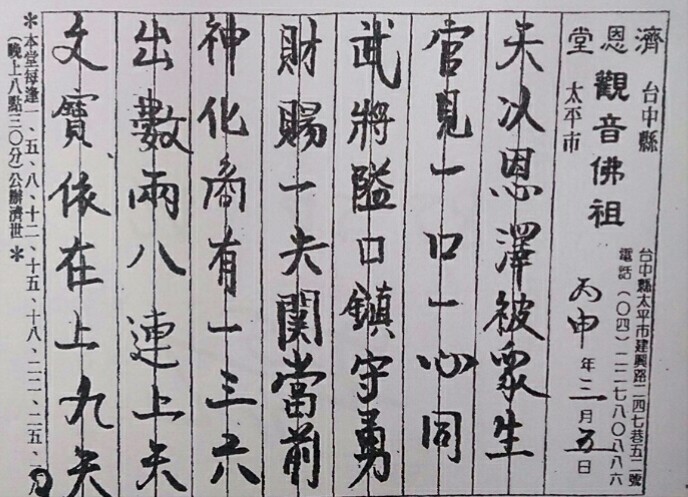 濟恩堂
台中縣
太平市
觀音佛祖
丙申年三月五日
台中縣太平市建興路二四七巷五二號
電話(〇四)二二七八〇八八六
天以恩澤被眾生
官見一口一心同
武將隘口鎮守勇
財賜一夫関當前
神化商有一三六
出數兩八連上天
文寶依在上九天
*本堂每逢一、五、八、十二、十五、十八、二二、二五、二八
(晚上八點三〇分)公辦濟世*